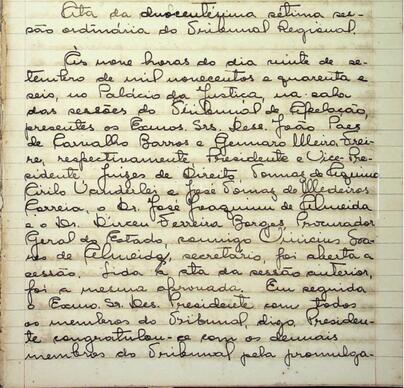 Ata da duocentésima sétima ses-
são ordinária do Tribunal Regional.
Às nove horas do dia vinte de se-
tembro de mil novecentos e quarenta e
seis, no Palácio da Justiça, na sala
das sessões do Tribunal de Apelação,
presentes os Exmos. Srs. Des. João Paes
de Carvalho Barros e Gennaro Freire,
re, respectivamente Presidente e Vice-Pre-
sidente Juizes de Direito, Tomaz de Aquino
Cirilo Wanderlei e José Tomaz de Medeiros
Correia, o Dr. José Joaquim de Almeida
e o Dr. Dirceu Ferreira Borges, Procurador
Geral do Estado, comigo Vinicius Soa-
res de Almeida, secretário, foi aberta a
sessão. Lida a ata da sessão anterior,
foi a mesma aprovada. Em seguida
o Exmo. Sr. Des. Presidente com todos
os membros do Tribunal, digo, Presiden-
te congratulou-se com os demais
membros do Tribunal pela promulga-